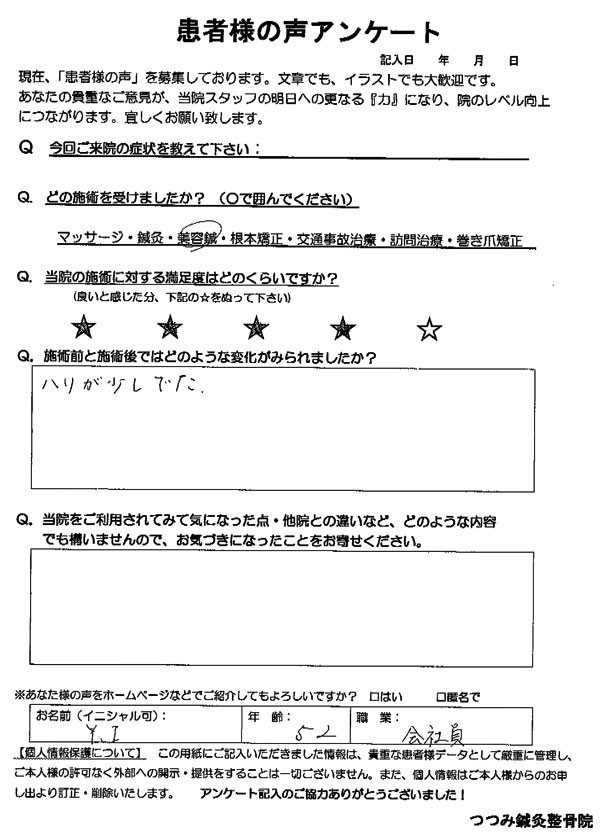 患者様の声アンケート
記入日　　年　　月　　日
現在、「患者様の声」を募集しております。文章でも、イラストでも大歓迎です。
あなたの貴重なご意見が、当院スタッフの明日への更なる『力』になり、院のレベル向上
につながります。宜しくお願い致します。
Q　今回ご来院の症状を教えて下さい：
Q. どの施術を受けましたか？（〇で囲んでください）
マッサージ・鍼灸・美容鍼・根本矯正・交通事故治療・訪問治療・巻き爪矯正
Q. 当院の施術に対する満足度はどのくらいですか？
（良いと感じた分、下記の☆をぬって下さい）
★ ★ ★ ★ ☆
Q. 施術前と施術後ではどのような変化がみられましたか？
ハリが少しでた.
Q. 当院をご利用されてみて気になった点・他院との違いなど、どのような内容
でも構いませんので、お気づきになったことをお寄せください。
※あなた様の声をホームページなどでご紹介してもよろしいですか？　□はい　　□匿名で
お名前（イニシャル可）：　年 齢：　職 業：
Y.I　52　会社員
【個人情報保護について】　この用紙にご記入いただきました情報は、貴重な患者様データとして厳重に管理し、
ご本人様の許可なく外部への開示・提供をすることは一切ございません。また、個人情報はご本人様からのお申
し出より訂正・削除いたします。　アンケート記入のご協力ありがとうございました！
つつみ鍼灸整骨院